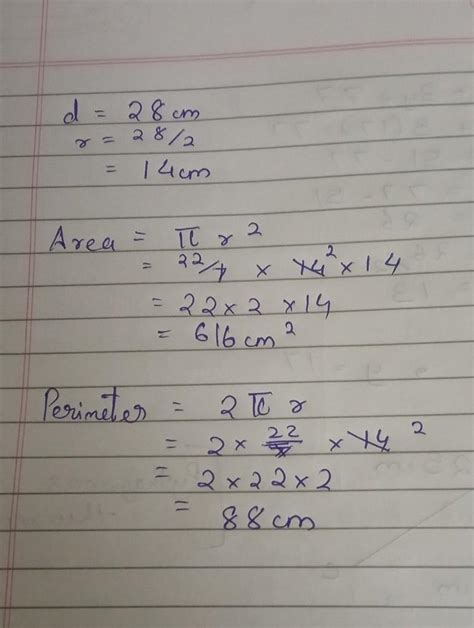 d = 28 cm
r = 28/2
= 14 cm
Area = π r²
= 22/7 × 14² × 14
= 22 × 2 × 14
= 616 cm²
Perimeter = 2 π r
= 2 × 22/7 × 14 2
= 2 × 22 × 2
= 88 cm